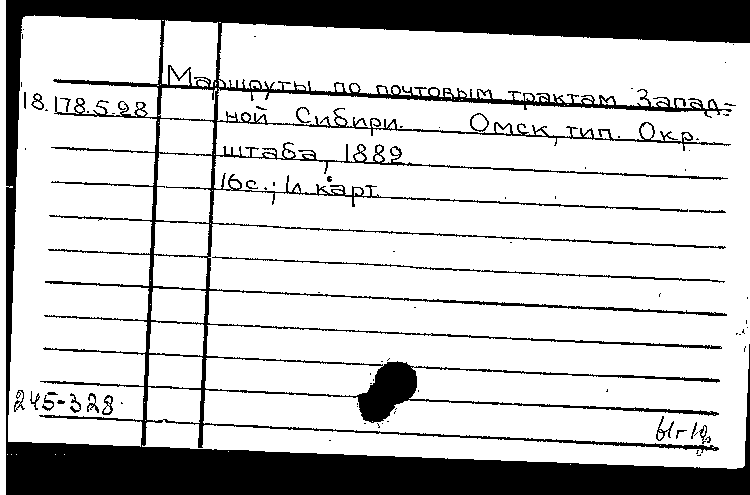 Маршруты по почтовым трактам Запад=
18.178.5.98
ной Сибири. Омск, тип. Окр.
штаба, 1882.
16с.; 1л. карт
245-328